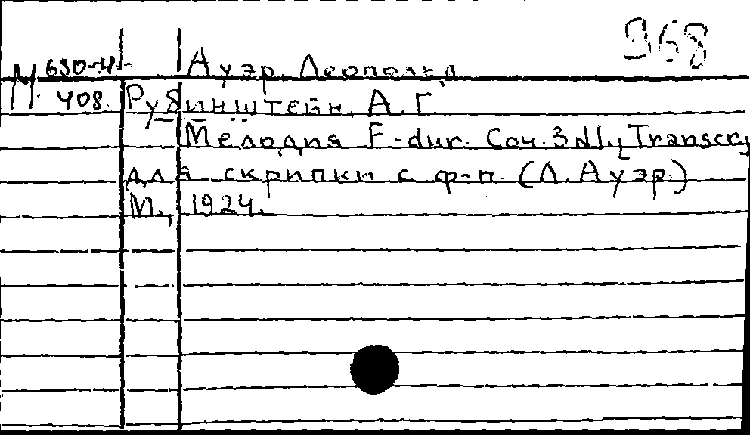 968
М 630-4 Ауэр, Леопольд
408. Рубинштейн, А. Г
Мелодия F-dur. Соч. 3 №1, Transcr
для скрипки с ф-п. (Л. Ауэр)
М., 1924.